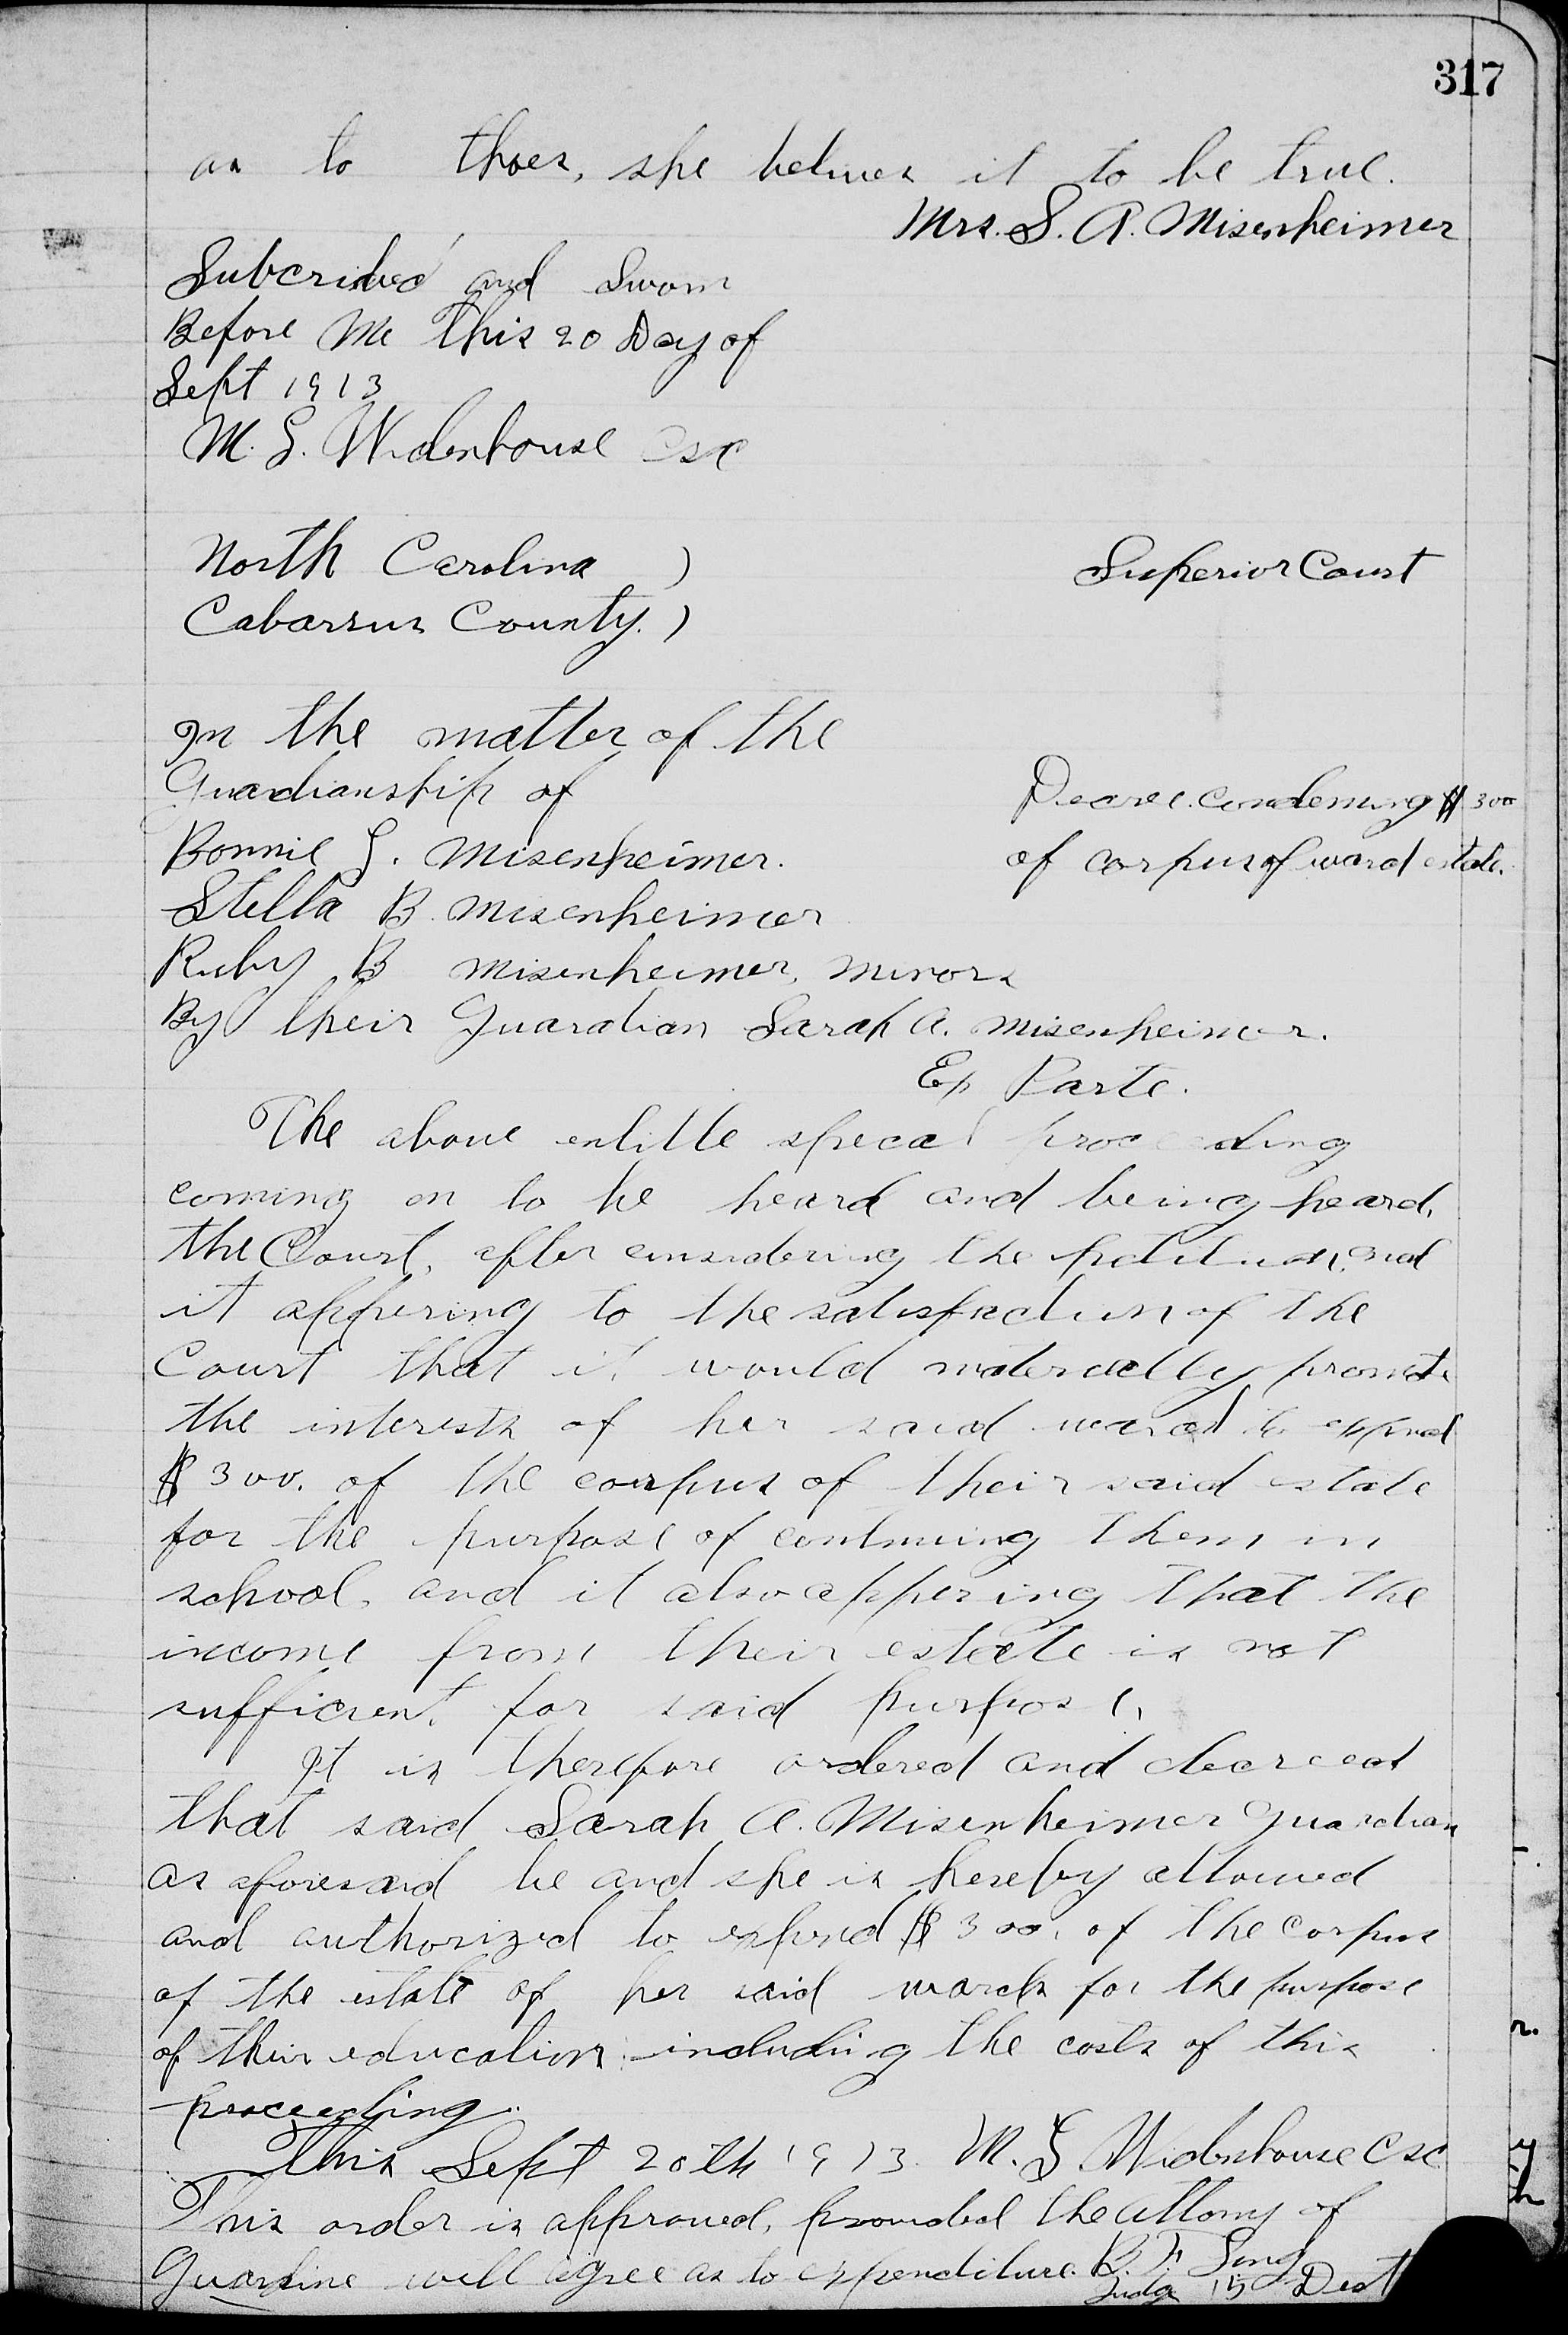 317
as to thoes, she belives it to be true.
Mrs. S. A. Misenheimer
Subcribed and Sworn
Before Me This 20 Day of
Sept 1913
M. L. Widenhouse CSC
North Carolina )
Superior Court
Cabarrus County. )
In the matter of the
Guardianship of
Decree. Condeming $300
Bonnie L. Misenheimer.
of corpus of ward estate.
Stella B. Misenheimer
Ruby B Misenheimer, minors
By their Guardian Sarah A. Misenheimer.
Ex Parte.
The above entitle specal proceeding
coming on to be heard and being heard,
the Court, after considering the petition, and
it appering to the satisfaction of the
Court that it would materially promote
the interests of her said ward to expend
$300. of the corpus of their said estate
for the purpose of continuing them in
school, and it also appering that the
income from their estate is not
sufficient for said purpose,
It is therefore ordered and decreed
that said Sarah A. Misenheimer Guardian
as aforesaid be and she is hereby allowed
and authorized to expend $300. of the corpus
of the estate of her said wards for the purpose
of their education including the costs of this
proceeding.
This Sept 20th 1913. M. L Widenhouse CSC
This order is approved, provided the attorny of
Guardine will agree as to expenditure. B. F. Long
Judge 15 Dist